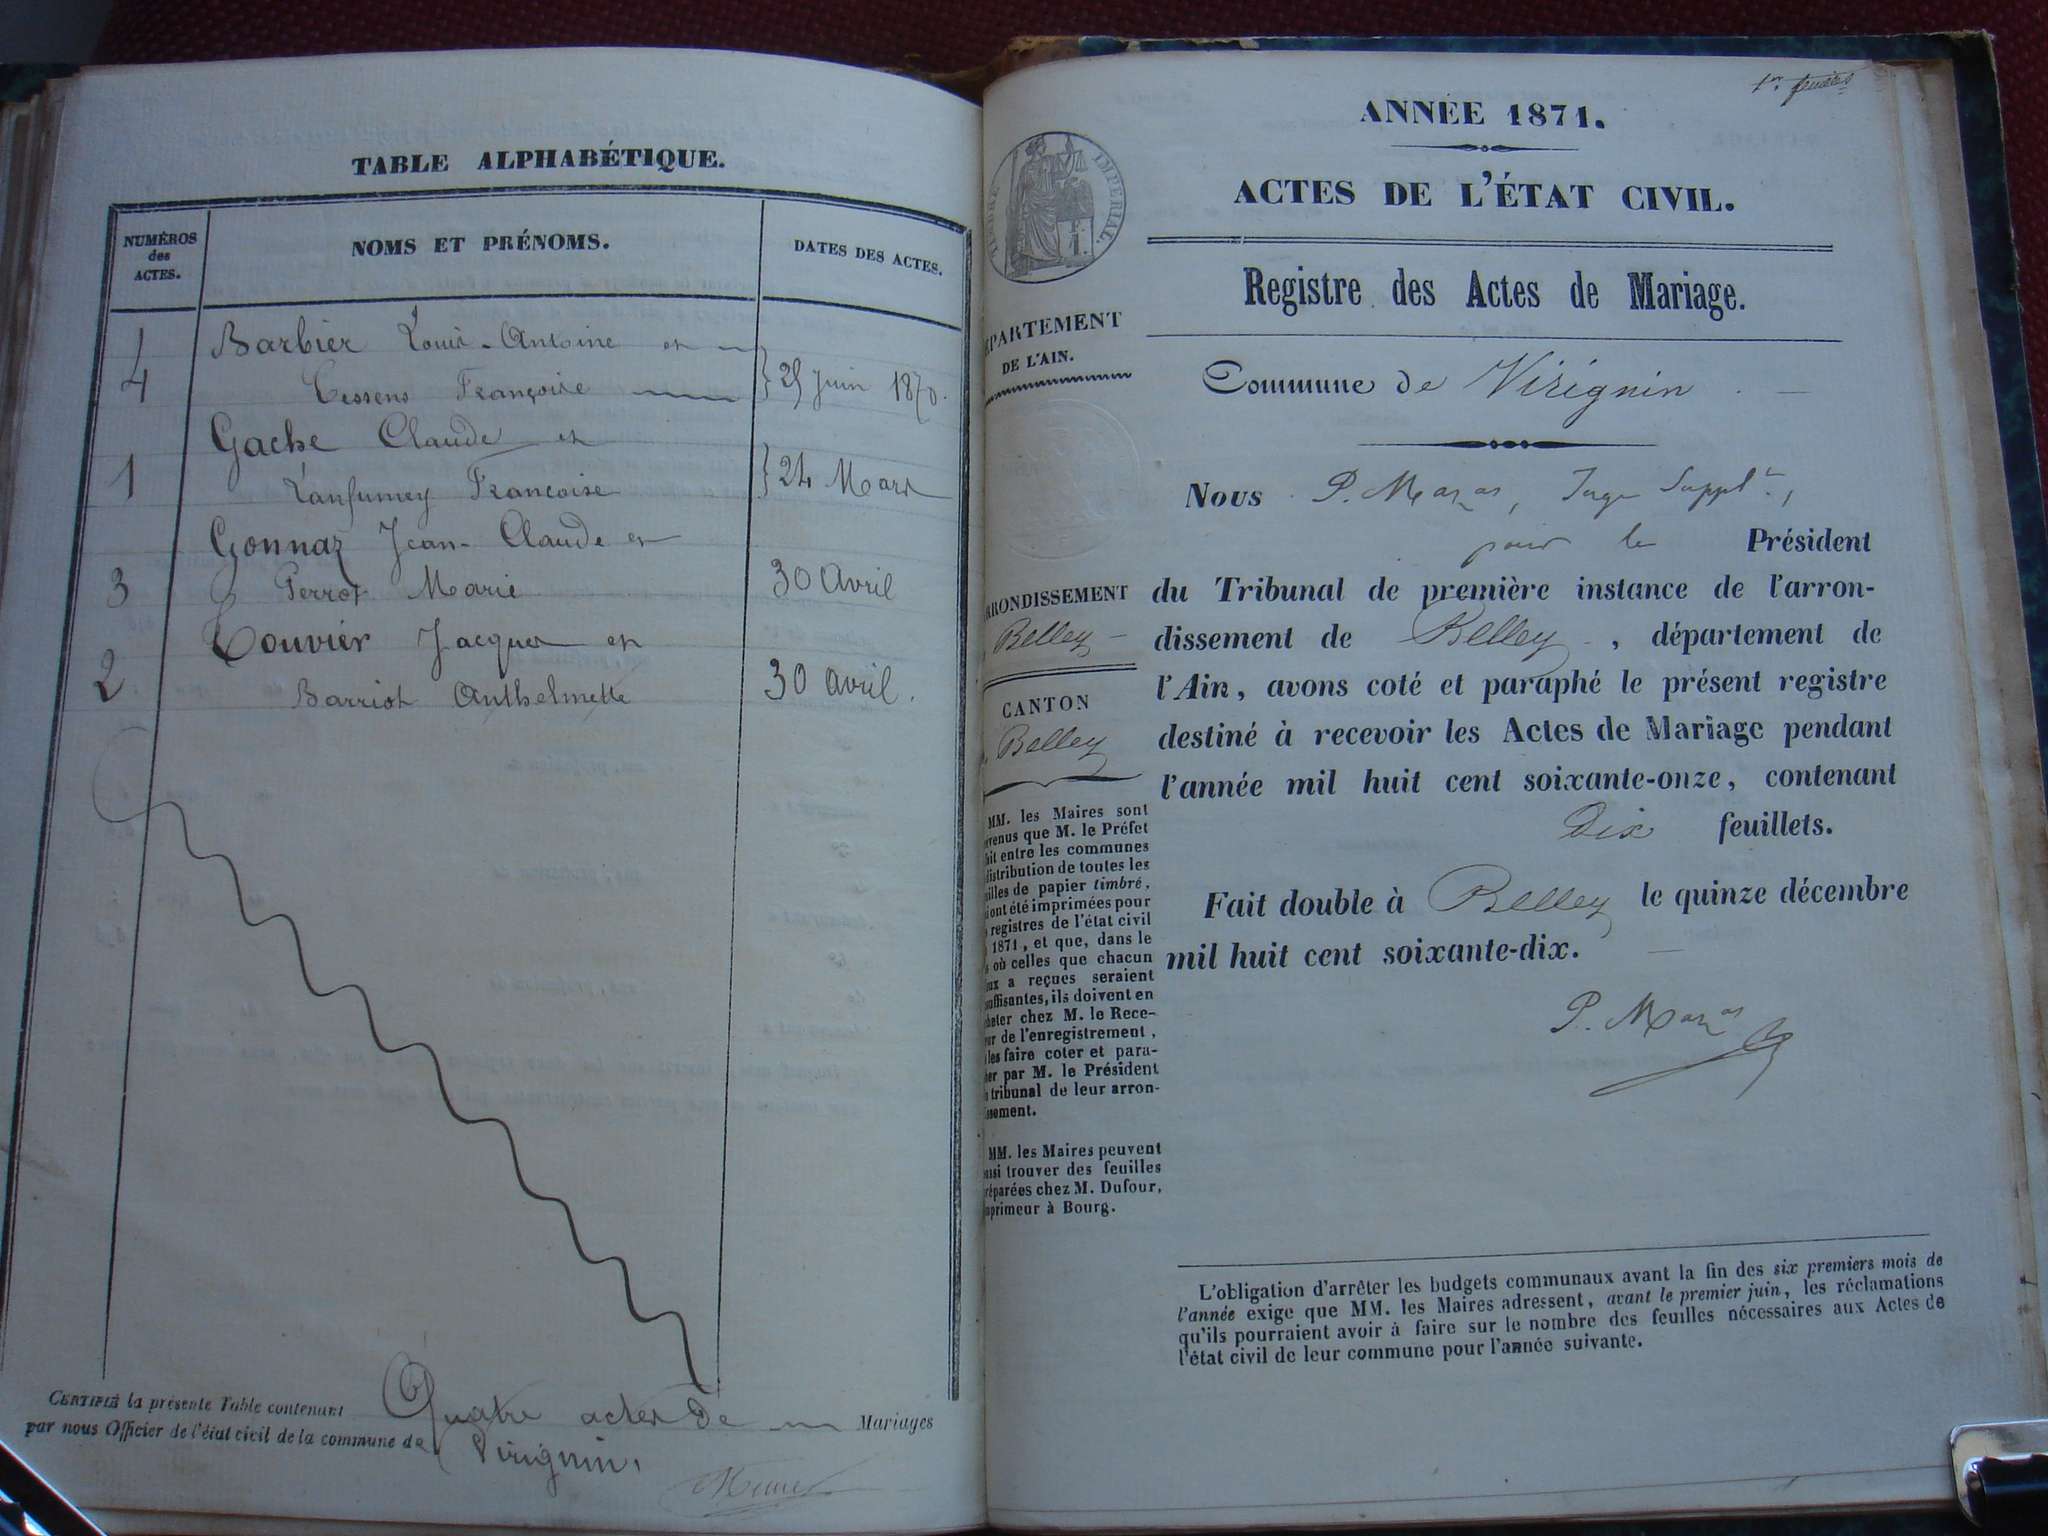 TABLE ALPHABÉTIQUE.
NUMÉROS des ACTES.
NOMS ET PRÉNOMS.
DATES DES ACTES.
Barbier Louis-Antoine et
4 Tessens Françoise 25 juin 1870.
Gache Claude et
1 Lanfumey Francoise 24 Mars
Gonnaz Jean-Claude et
3 Perrot Marie 30 Avril
Touvier Jacques et
2 Barriot Anthelmette 30 avril.
CERTIFIÉ la présente Table contenant Quatre actes de Mariages
par nous Officier de l'état civil de la commune de Virignin.
1er feuillet
ANNÉE 1871.
ACTES DE L'ÉTAT CIVIL.
TIMBRE IMPÉRIAL.
Registre des Actes de Mariage.
PARTEMENT
DE L'AIN.
Commune de Virignin
Nous P. Mazas, Juge Suppt,
pour le Président
du Tribunal de première instance de l'arron-
dissement de Belley, département de
l'Ain, avons coté et paraphé le présent registre
destiné à recevoir les Actes de Mariage pendant
l'année mil huit cent soixante-onze, contenant
Dix feuillets.
Fait double à Belley le quinze décembre
mil huit cent soixante-dix.
P. Mazas
RRONDISSEMENT
Belley
CANTON
Belley
MM. les Maires sont
venus que M. le Préfet
ait entre les communes
distribution de toutes les
illes de papier timbré,
i ont été imprimées pour
registres de l'état civil
1871, et que, dans le
s où celles que chacun
ux a reçues seraient
uffisantes, ils doivent en
heter chez M. le Rece-
ur de l'enregistrement,
les faire coter et para-
her par M. le Président
tribunal de leur arron-
issement.
MM. les Maires peuvent
ussi trouver des feuilles
réparées chez M. Dufour,
mprimeur à Bourg.
L'obligation d'arrêter les budgets communaux avant la fin des six premiers mois de
l'année exige que MM. les Maires adressent, avant le premier juin, les réclamations
qu'ils pourraient avoir à faire sur le nombre des feuilles nécessaires aux Actes de
l'état civil de leur commune pour l'année suivante.